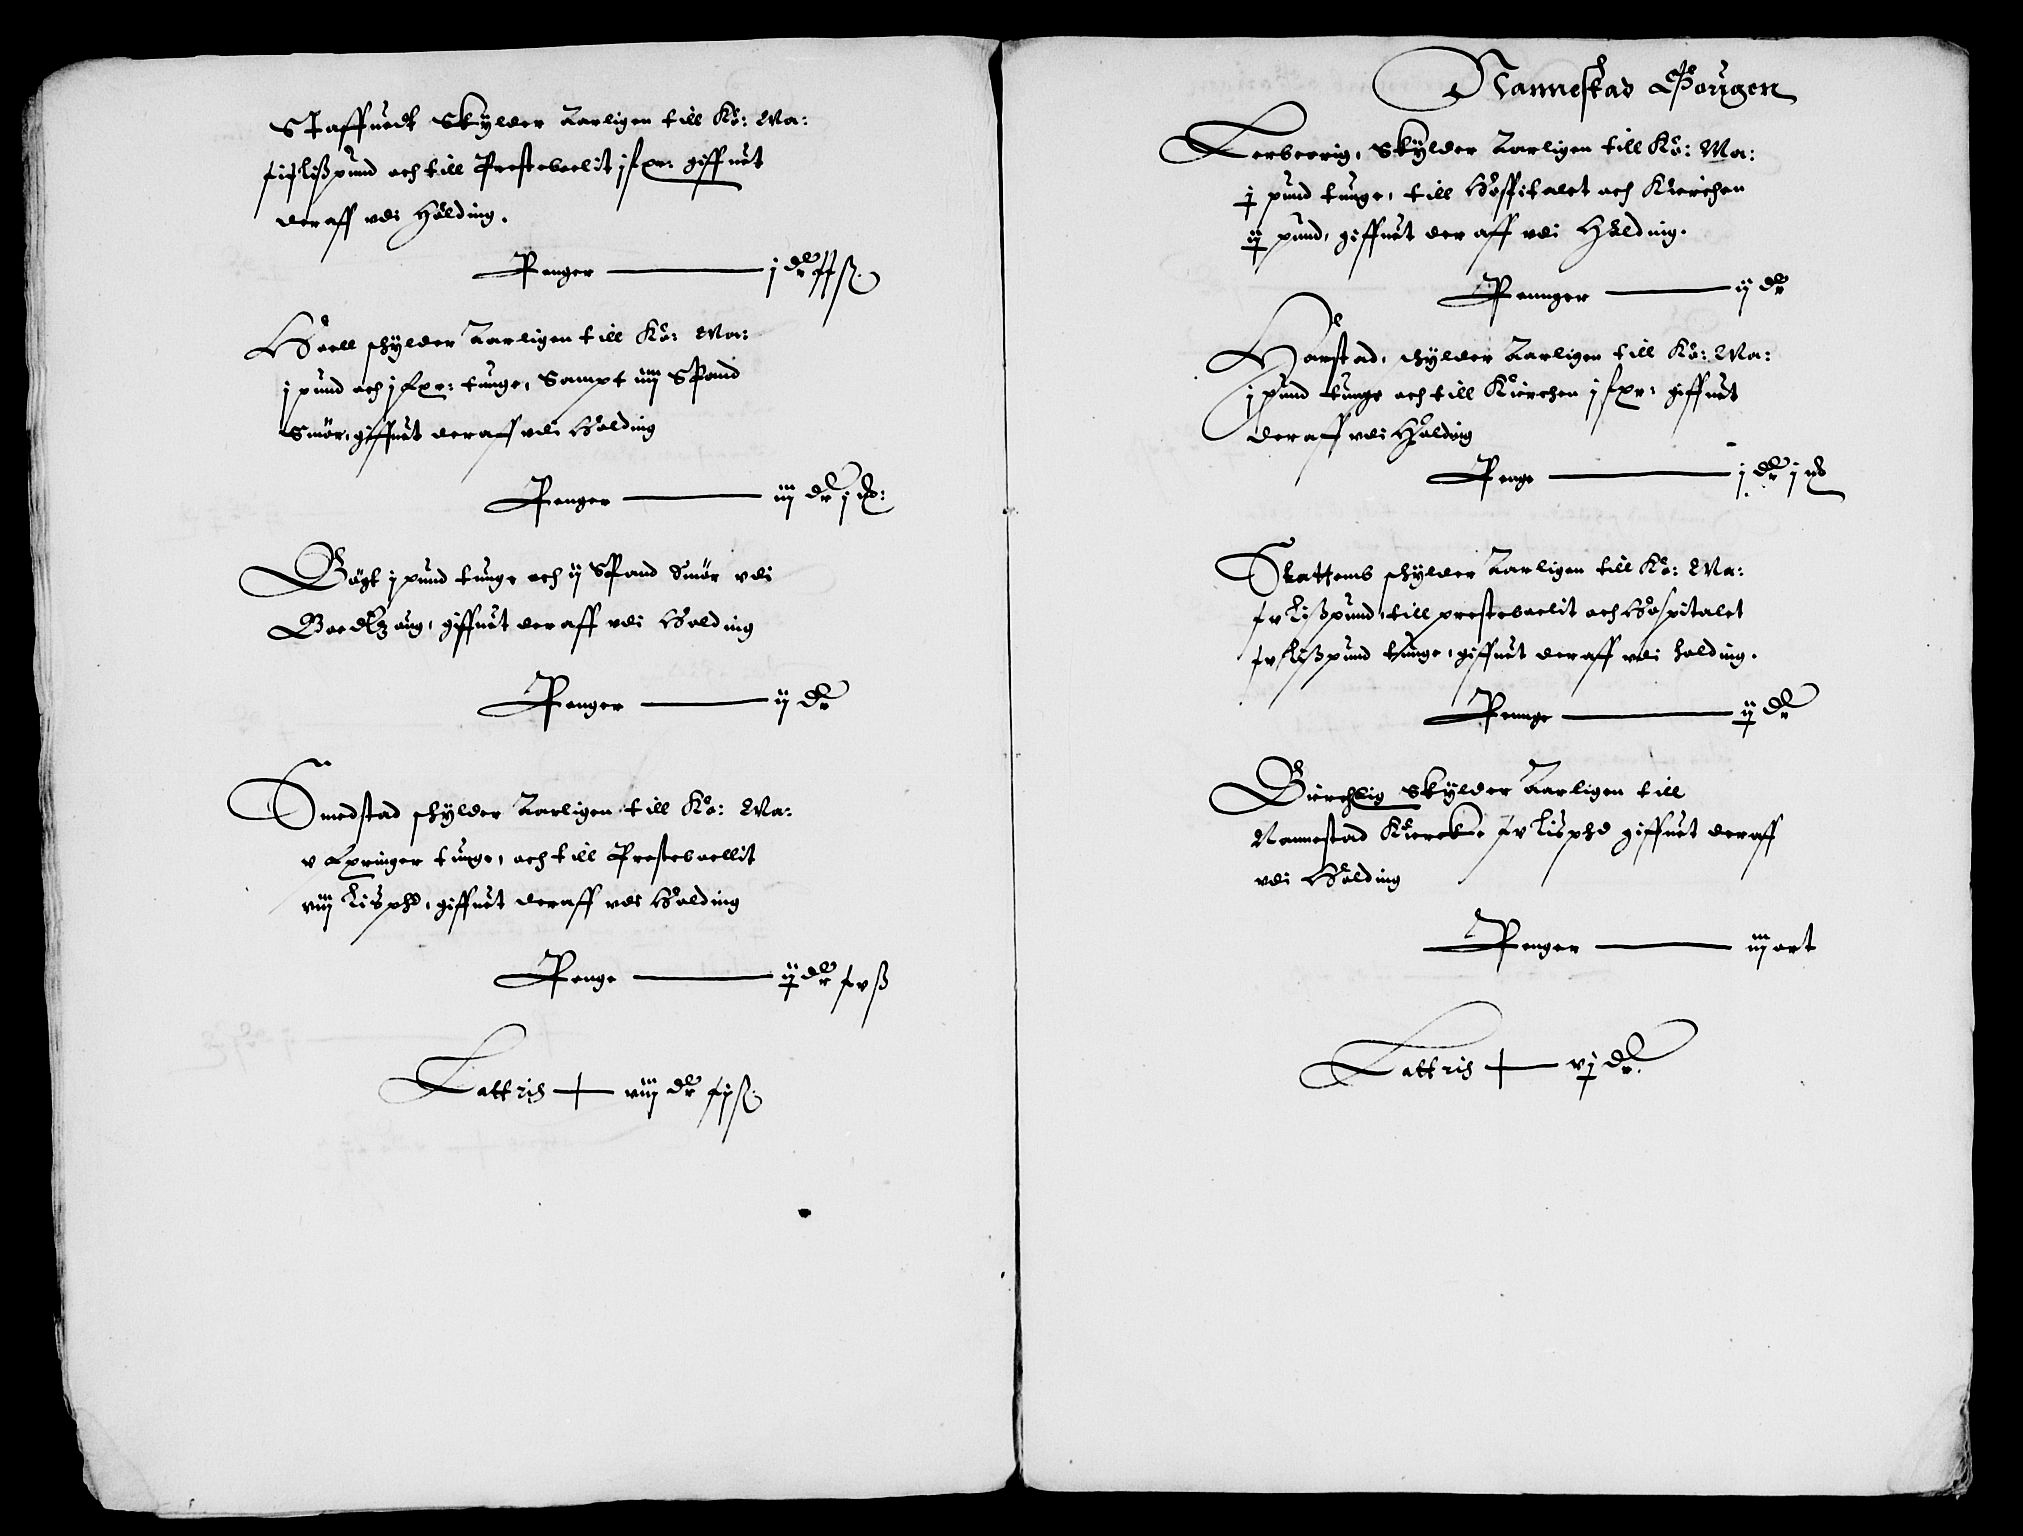 Staffnedt Skÿlder Aarligen till Kö: Ma:
lißpund och till Prestebolit j giffuet
deraff udi Hölding.
Penger — j dlr ß
Hoell schÿlder Aarligen till Kö: Ma:
j pund och j fxr: tunge, Sampt iiij Spand
Smör, giffuet deraff udi Hölding
Penger — iiij dlr j
Bögt j pund tunge och ij Spand Smör udi
giffuet deraff udi Hölding
Penger — ij dlr
Smedstad schÿlder Aarligen till Kö: Ma:
v fxringer tunge, och till Presteboellit
viij Lispd, giffuet deraff udi Hölding
Penge — ij dlr xv ß
Lattris — viij dlr xij ß.
Nannestad Sougen
Lerbeerig, Skÿlder Aarligen till Kö: Ma:
j pund tunge, till Hospitalet och Kierchen
ij pund, giffuet deraff udi Hölding.
Pennger — ij dlr
Harstad, schÿlder Aarligen till Kö: Ma:
j pund tunge och till Kierchen j fxr: giffuet
deraff udi Hölding
Penge — j dlr j
Skattems schÿlder Aarligen till Kö: Ma:
xv Lißpund, till prestebolit och Hospitalet
xv Lißpund tunge, giffuet deraff udi holding.
Pennge — ij dlr
Bierchlig Skÿlder Aarligen till
Nannestad Kiercke xv Lisphd giffuet deraff
udi Hölding
Penger — iij ort
Lattris — vj dlr.